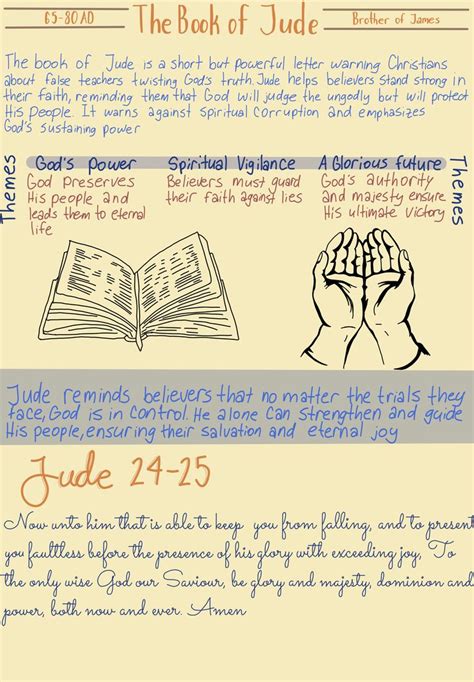 65-80 AD
The Book of Jude
Brother of James
The book of Jude is a short but powerful letter warning Christians
about false teachers twisting God's truth. Jude helps believers stand strong in
their faith, reminding them that God will judge the ungodly but will protect
His people. It warns against spiritual corruption and emphasizes
God's sustaining power
Themes
God's Power
Spiritual Vigilance
A Glorious future
Themes
God preserves
His people, and
leads them to eternal
life
Believers must guard
their faith against lies
God's authority
and majesty ensure
His ultimate victory
Jude reminds believers that no matter the trials they
face, God is in control. He alone can strengthen and guide
His people, ensuring their salvation and eternal joy
Jude 24-25
Now unto him that is able to keep you from falling, and to present
you faultless before the presence of his glory with exceeding joy, To
the only wise God our Saviour, be glory and majesty, dominion and
power, both now and ever. Amen